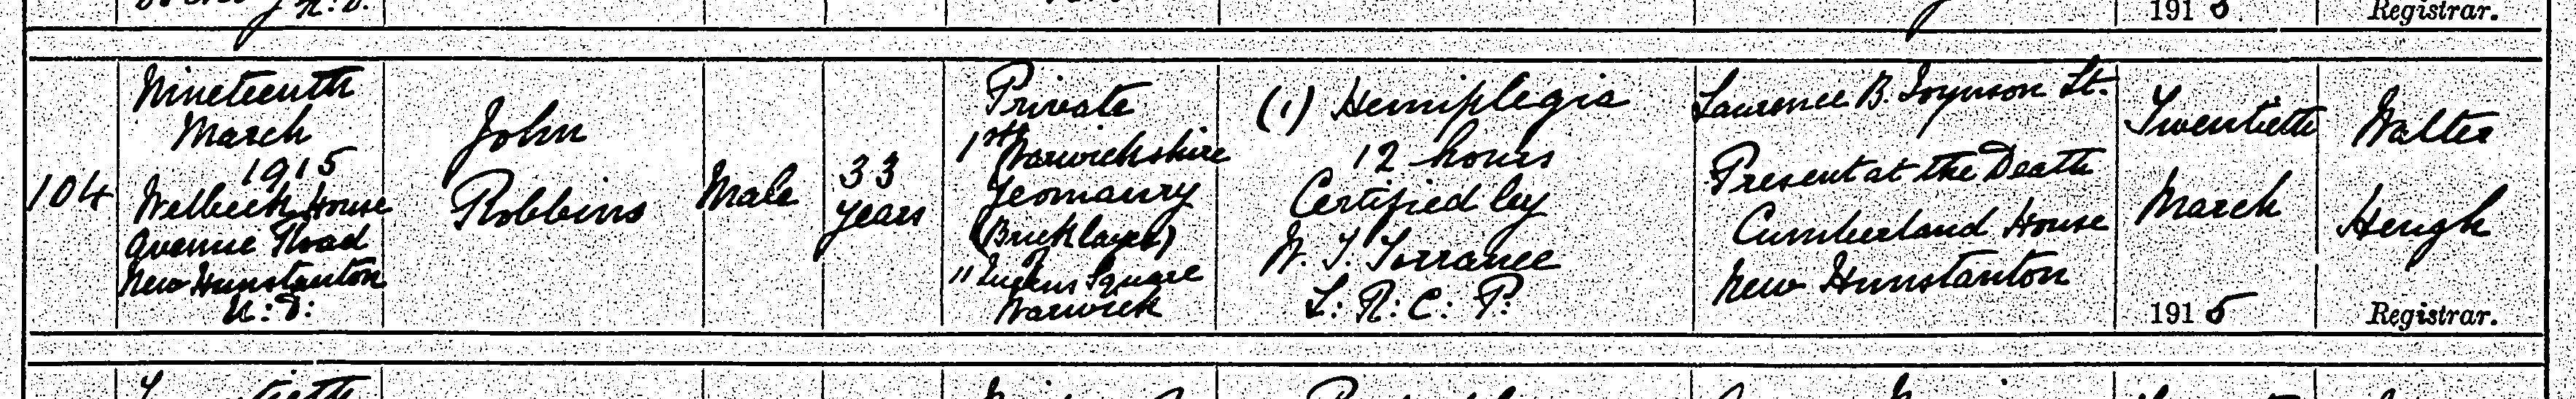 1915 Registrar.
104
Nineteenth
March
1915
Welbeck House
Avenue Road
New Hunstanton
U:D:
John
Robbins
Male
33
years
Private
1st Warwickshire
Yeomanry
(Bricklayer)
11 Queens Square
Warwick
(1) Hemiplegia
12 hours
Certified by
W. T. Torrance
L: R: C: P:
Laurence B. Toynson Lt.
Present at the Death
Cumberland House
New Hunstanton
Twentieth
March
1915
Walter
Heugh
Registrar.